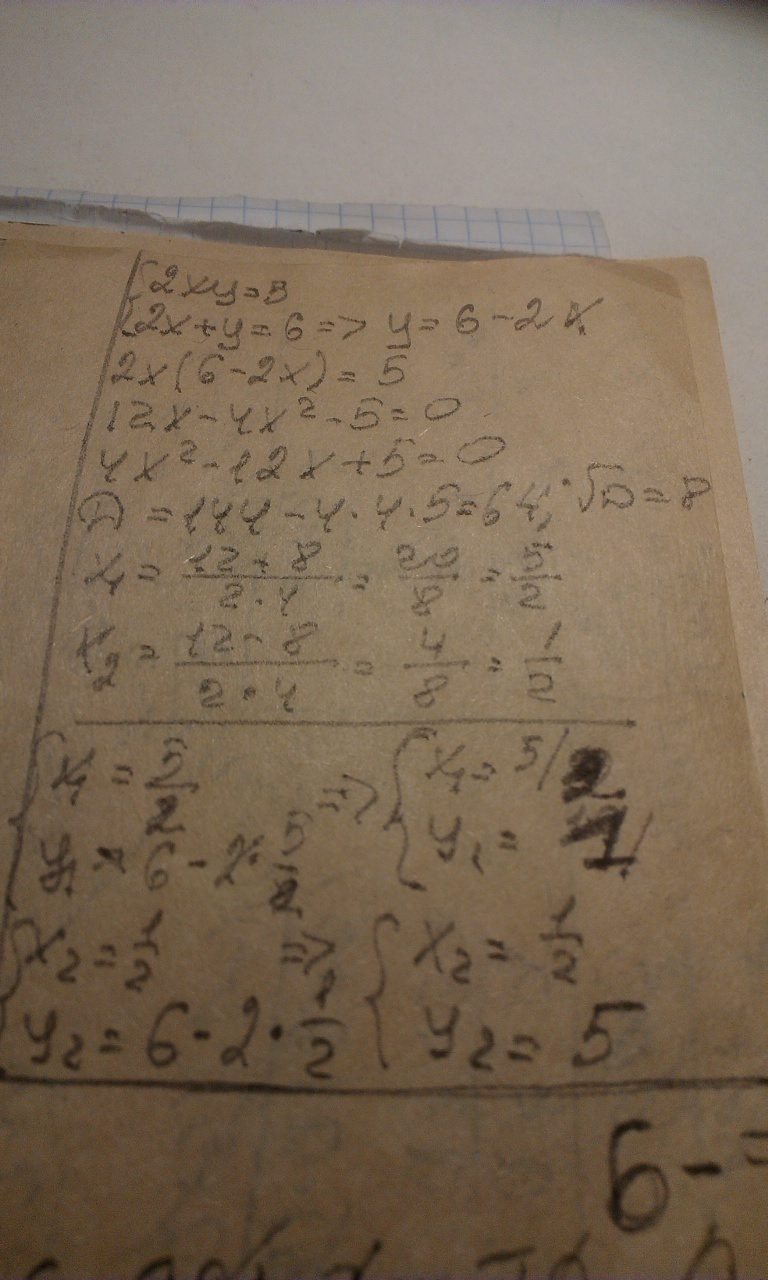 {2xy=5
{2x+y=6=> y=6-2x
2x(6-2x)=5
12x-4x²-5=0
4x²-12x+5=0
D=144-4·4·5=64; √D=8
x₁=(12+8)/(2·4)=20/8=5/2
x₂=(12-8)/(2·4)=4/8=1/2
{x₁=5/2 => {x₁=5/2
{y₁=6-2·5/2 {y₁=1
{x₂=1/2 => {x₂=1/2
{y₂=6-2·1/2 {y₂=5
6-